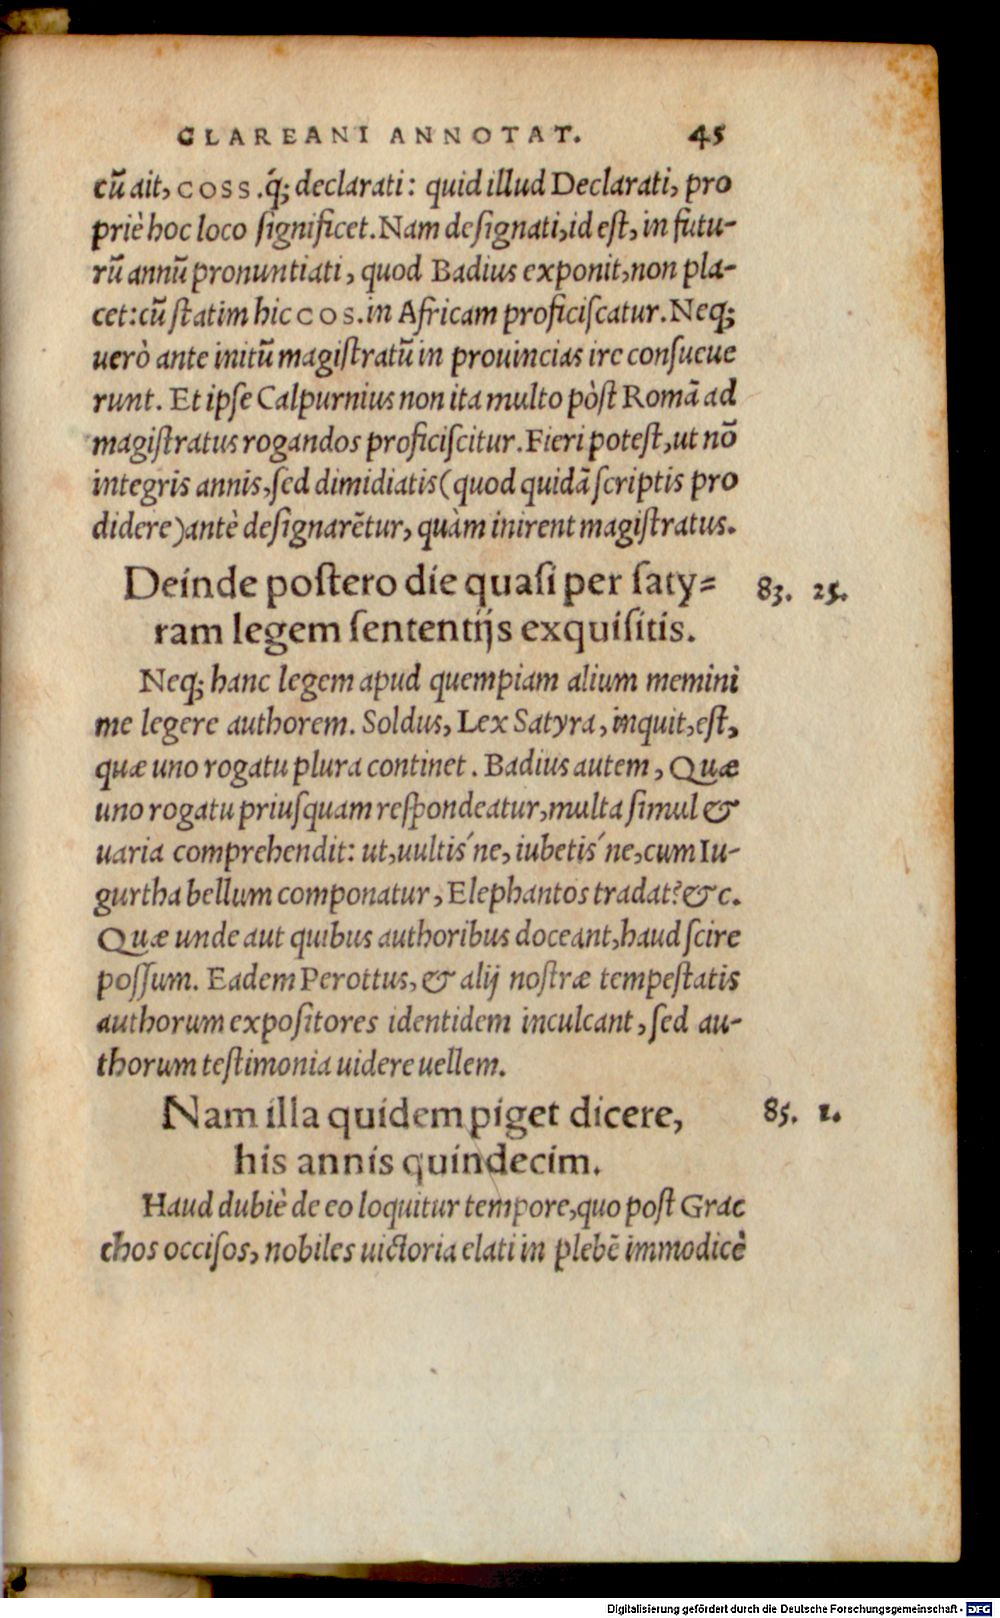 GLAREANI ANNOTAT. 45
cũ ait, COSS. q́; declarati: quid illud Declarati, pro
priè hoc loco ſignificet. Nam deſignati, id eſt, in futu-
rũ annũ pronuntiati, quod Badius exponit, non pla-
cet: cũ ſtatim hic COS. in Africam proficiſcatur. Neq;
uerò ante initũ magiſtratũ in prouincias ire conſueue
runt. Et ipſe Calpurnius non ita multo pòſt Romã ad
magiſtratus rogandos proficiſcitur. Fieri poteſt, ut nõ
integris annis, ſed dimidiatis (quod quidã ſcriptis pro
didere) antè deſignarẽtur, quàm inirent magiſtratus.
Deinde poſtero die quaſi per ſaty= 83. 25.
ram legem ſententijs exquiſitis.
Neq; hanc legem apud quempiam alium memini
me legere authorem. Soldus, Lex Satyra, inquit, eſt,
quæ uno rogatu plura continet. Badius autem, Quæ
uno rogatu priuſquam reſpondeatur, multa ſimul &
uaria comprehendit: ut, uultis´ne, iubetis´ne, cum Iu-
gurtha bellum componatur, Elephantos tradat? & c.
Quæ unde aut quibus authoribus doceant, haud ſcire
poſſum. Eadem Perottus, & alij noſtræ tempeſtatis
authorum expoſitores identidem inculcant, ſed au-
thorum teſtimonia uidere uellem.
Nam illa quidem piget dicere, 85. 1.
his annis quindecim.
Haud dubiè de eo loquitur tempore, quo poſt Grac
chos occiſos, nobiles uictoria elati in plebẽ immodicè
Digitalisierung gefördert durch die Deutsche Forschungsgemeinschaft - DFG